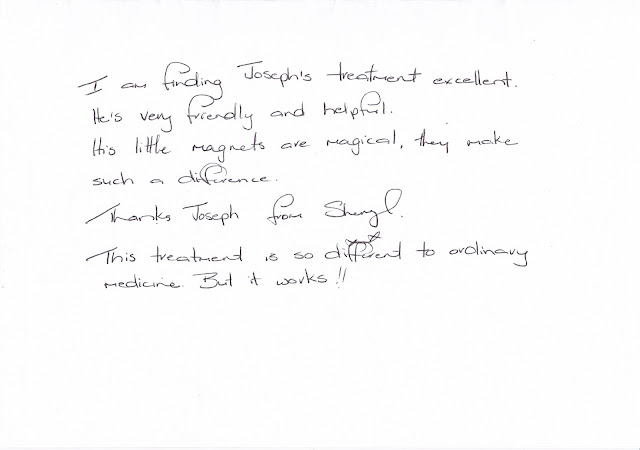 I am finding Joseph's treatment excellent.
He's very friendly and helpful.
His little magnets are magical, they make
such a difference.
Thanks Joseph from Sheryl.
This treatment is so different to ordinary
medicine. But it works!!